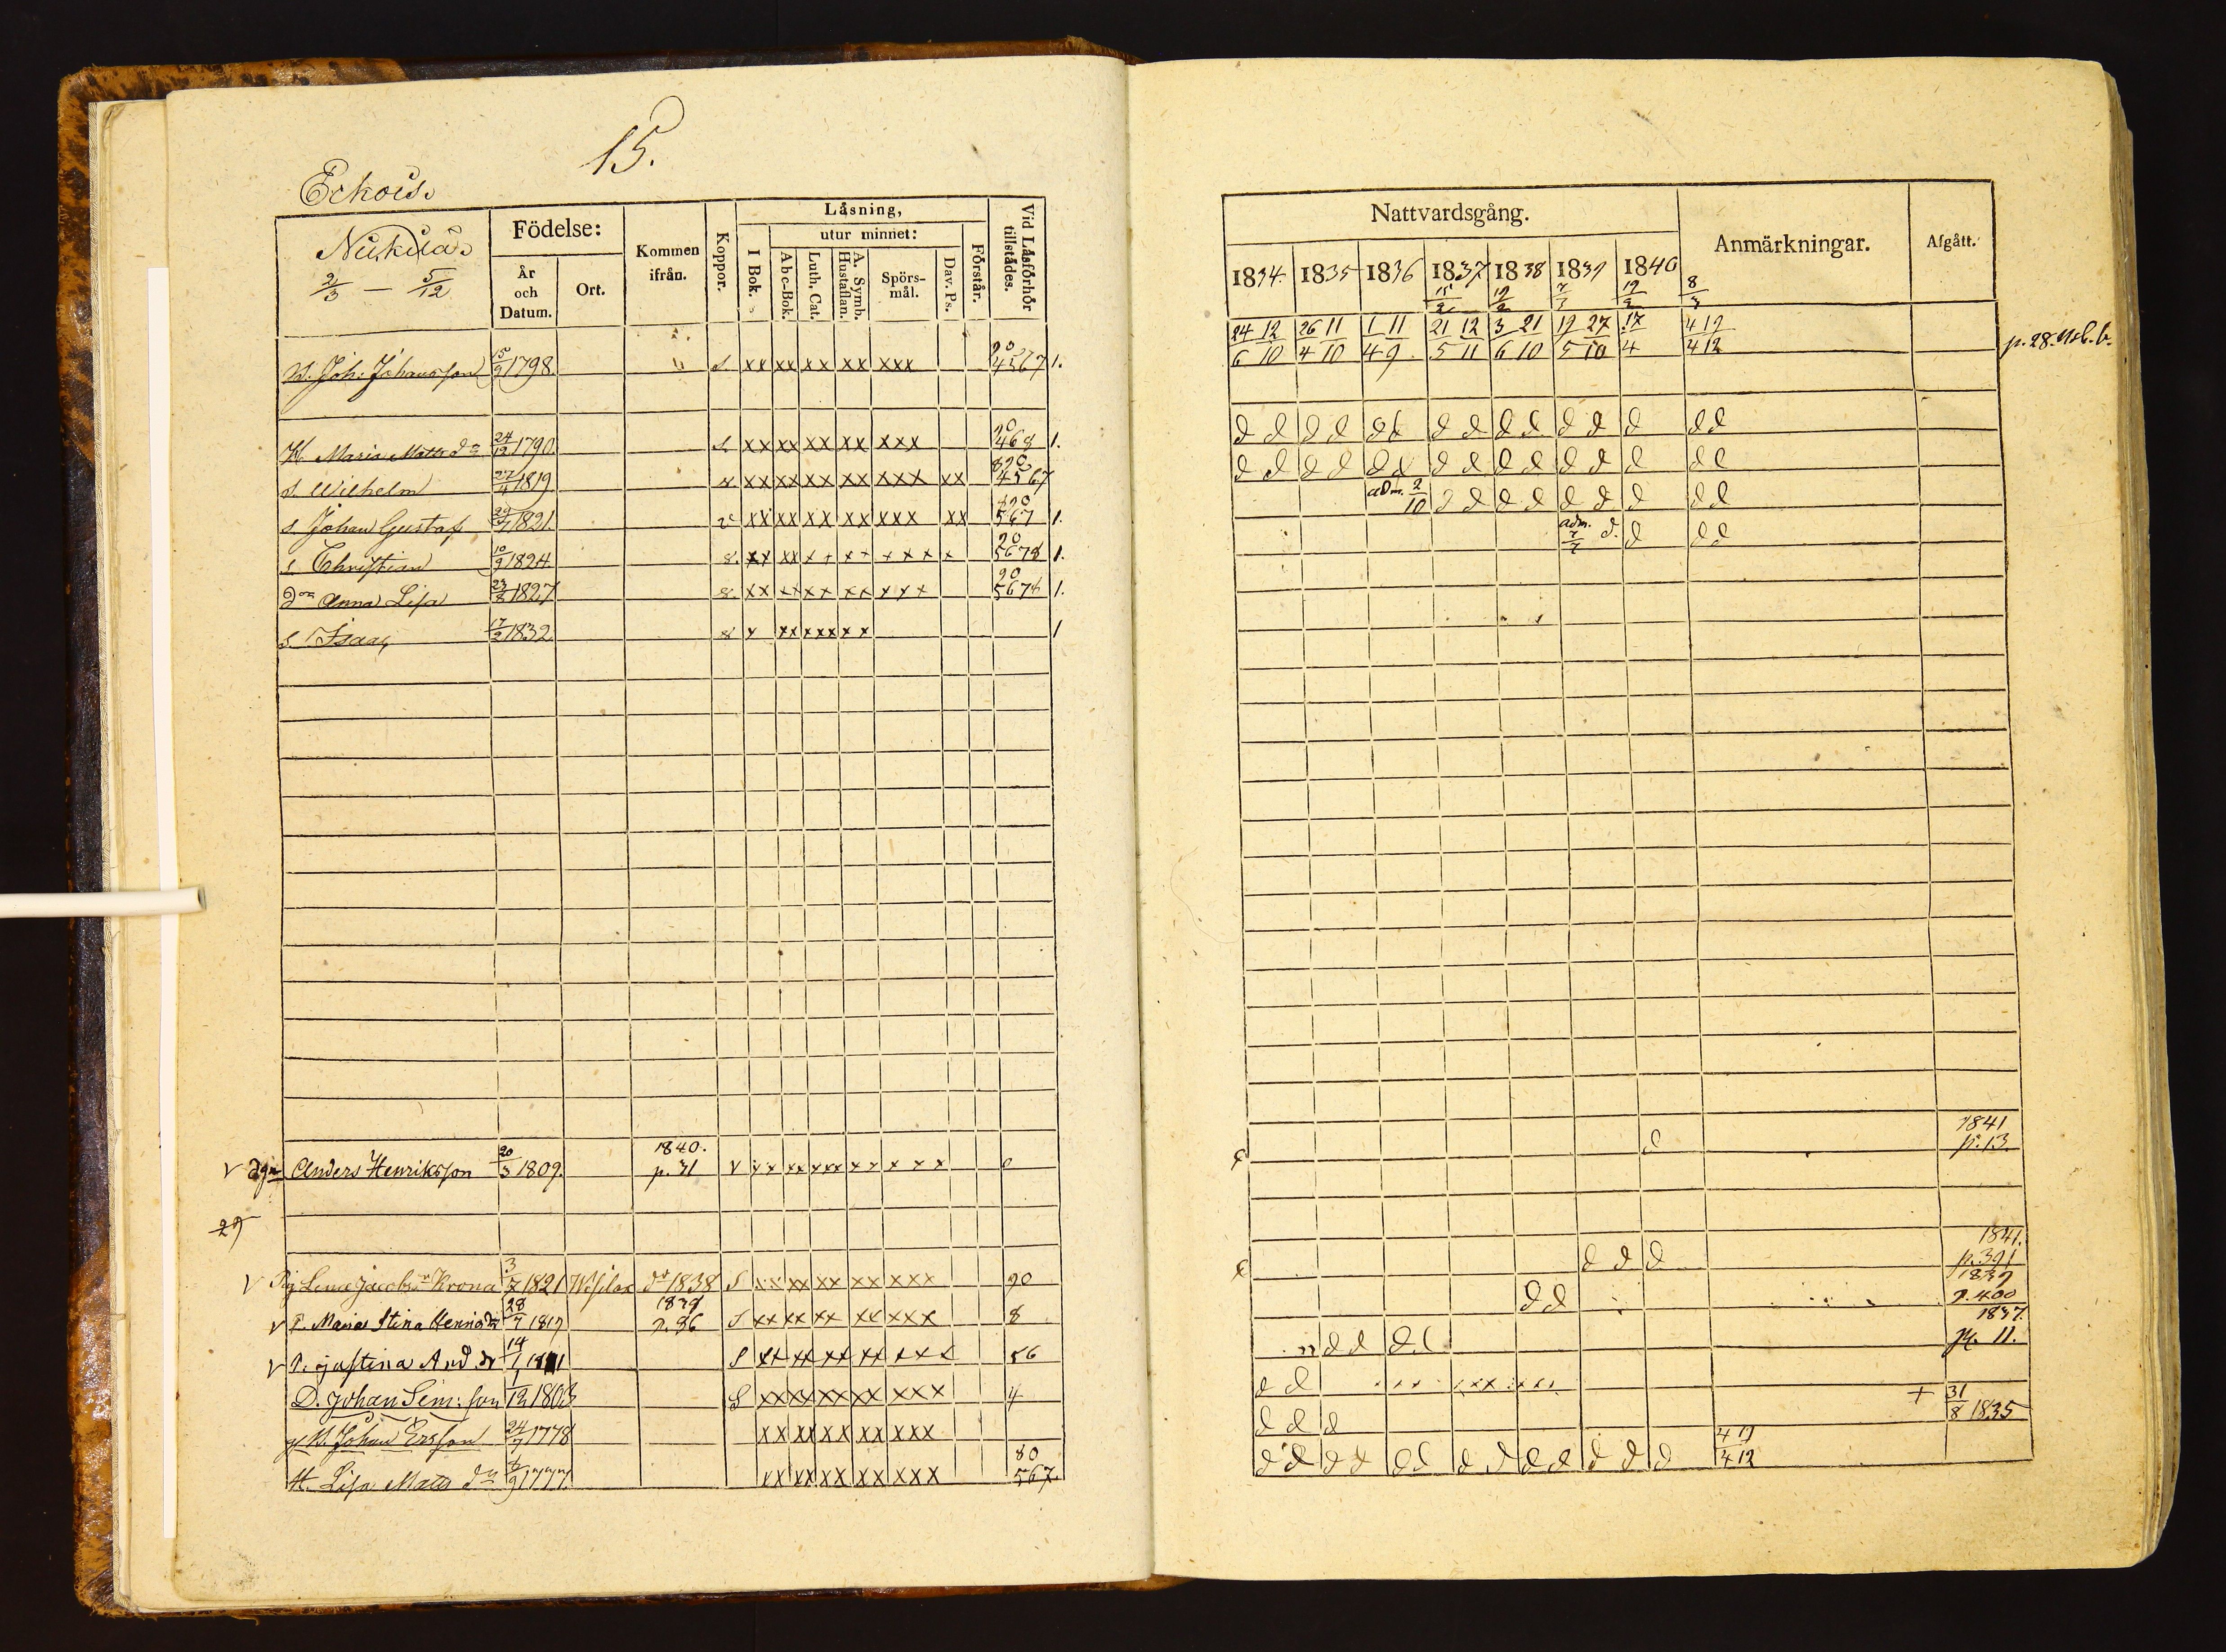 15.
Eckois.
Födelse:
Kommen ifrån.
Koppor.
Låsning,
utur minnet:
I Bok.
Abc-Bok.
Luth. Cat.
A. Symb. Hustaflan.
Spörs-mål.
Dav. Ps.
Förstår.
Vid Låsförhör tillstådes.
År och Datum.
Ort.
2/3 — 5/12
Joh: Johansson 15/9 1798 s xx xx xx xx xxx 90 4567 1.
H Maria Matts dr 24/12 1790 s xx xx xx xx xxx 90 468 1.
s. Wilhelm 27/4 1819 xx xx xx xx xxx xx 890 4567
s. Johan Gustaf 29/7 1821 v xx xx xx xx xxx xx 890 567 1.
s. Christian 10/9 1824 s. xx xx xx xx xxxx 90 5678 1.
dr Anna Lisa 23/8 1827 s. xx xx xx xx xxx 90 5678 1.
s Isaac 17/2 1832 s x xx xxx xx 1
v dgn Anders Henriksson 20/3 1809. 1840. p. 31 v xx xx xxx xx xxx 0
29
v Pig Lena Jacobs dr Krona 3/7 1821 1838 S xx xx xx xx xxx 90
v P. Maria Stina Henrics dr 28/7 1819 p. 36 S xx xx xx xx xxx 8
v P. Justina And. dr 14/1 S xx xx xx xx xxx 56
D. Johan Sim: son 1/12 1808 S xx xx xx xx xxx 4
Johan Ersson 24/7 1778 xx xx xx xx xxx
H. Lisa Matts dr 6/9 1777. xx xx xx xx xxx 80 567.
Nattvardsgång.
Anmärkningar.
Afgått.
1834. 1835 1836 1837 1838 1839 1840
15/2 19/2 7/3 19/2 8/3
24 12 26 11 1 11 21 12 3 21 19 27 17 4 19
6 10 4 10 4 9 5 11 6 10 5 10 4 4 12
p. 28.
d d d d d d d d d d d d d d d
d d d d d d d d d d d d d d d
adm. 2/10 d d d d d d d d d
adm. 7/7 d. d d d
d 1841 p. 13.
d d d 1841. p. 391
d d 1839 p. 400
n d d d d 1837. p. 11.
d d + 31/8 1835
d d d
d d d d d d d d d d d d d 4 19 4 12